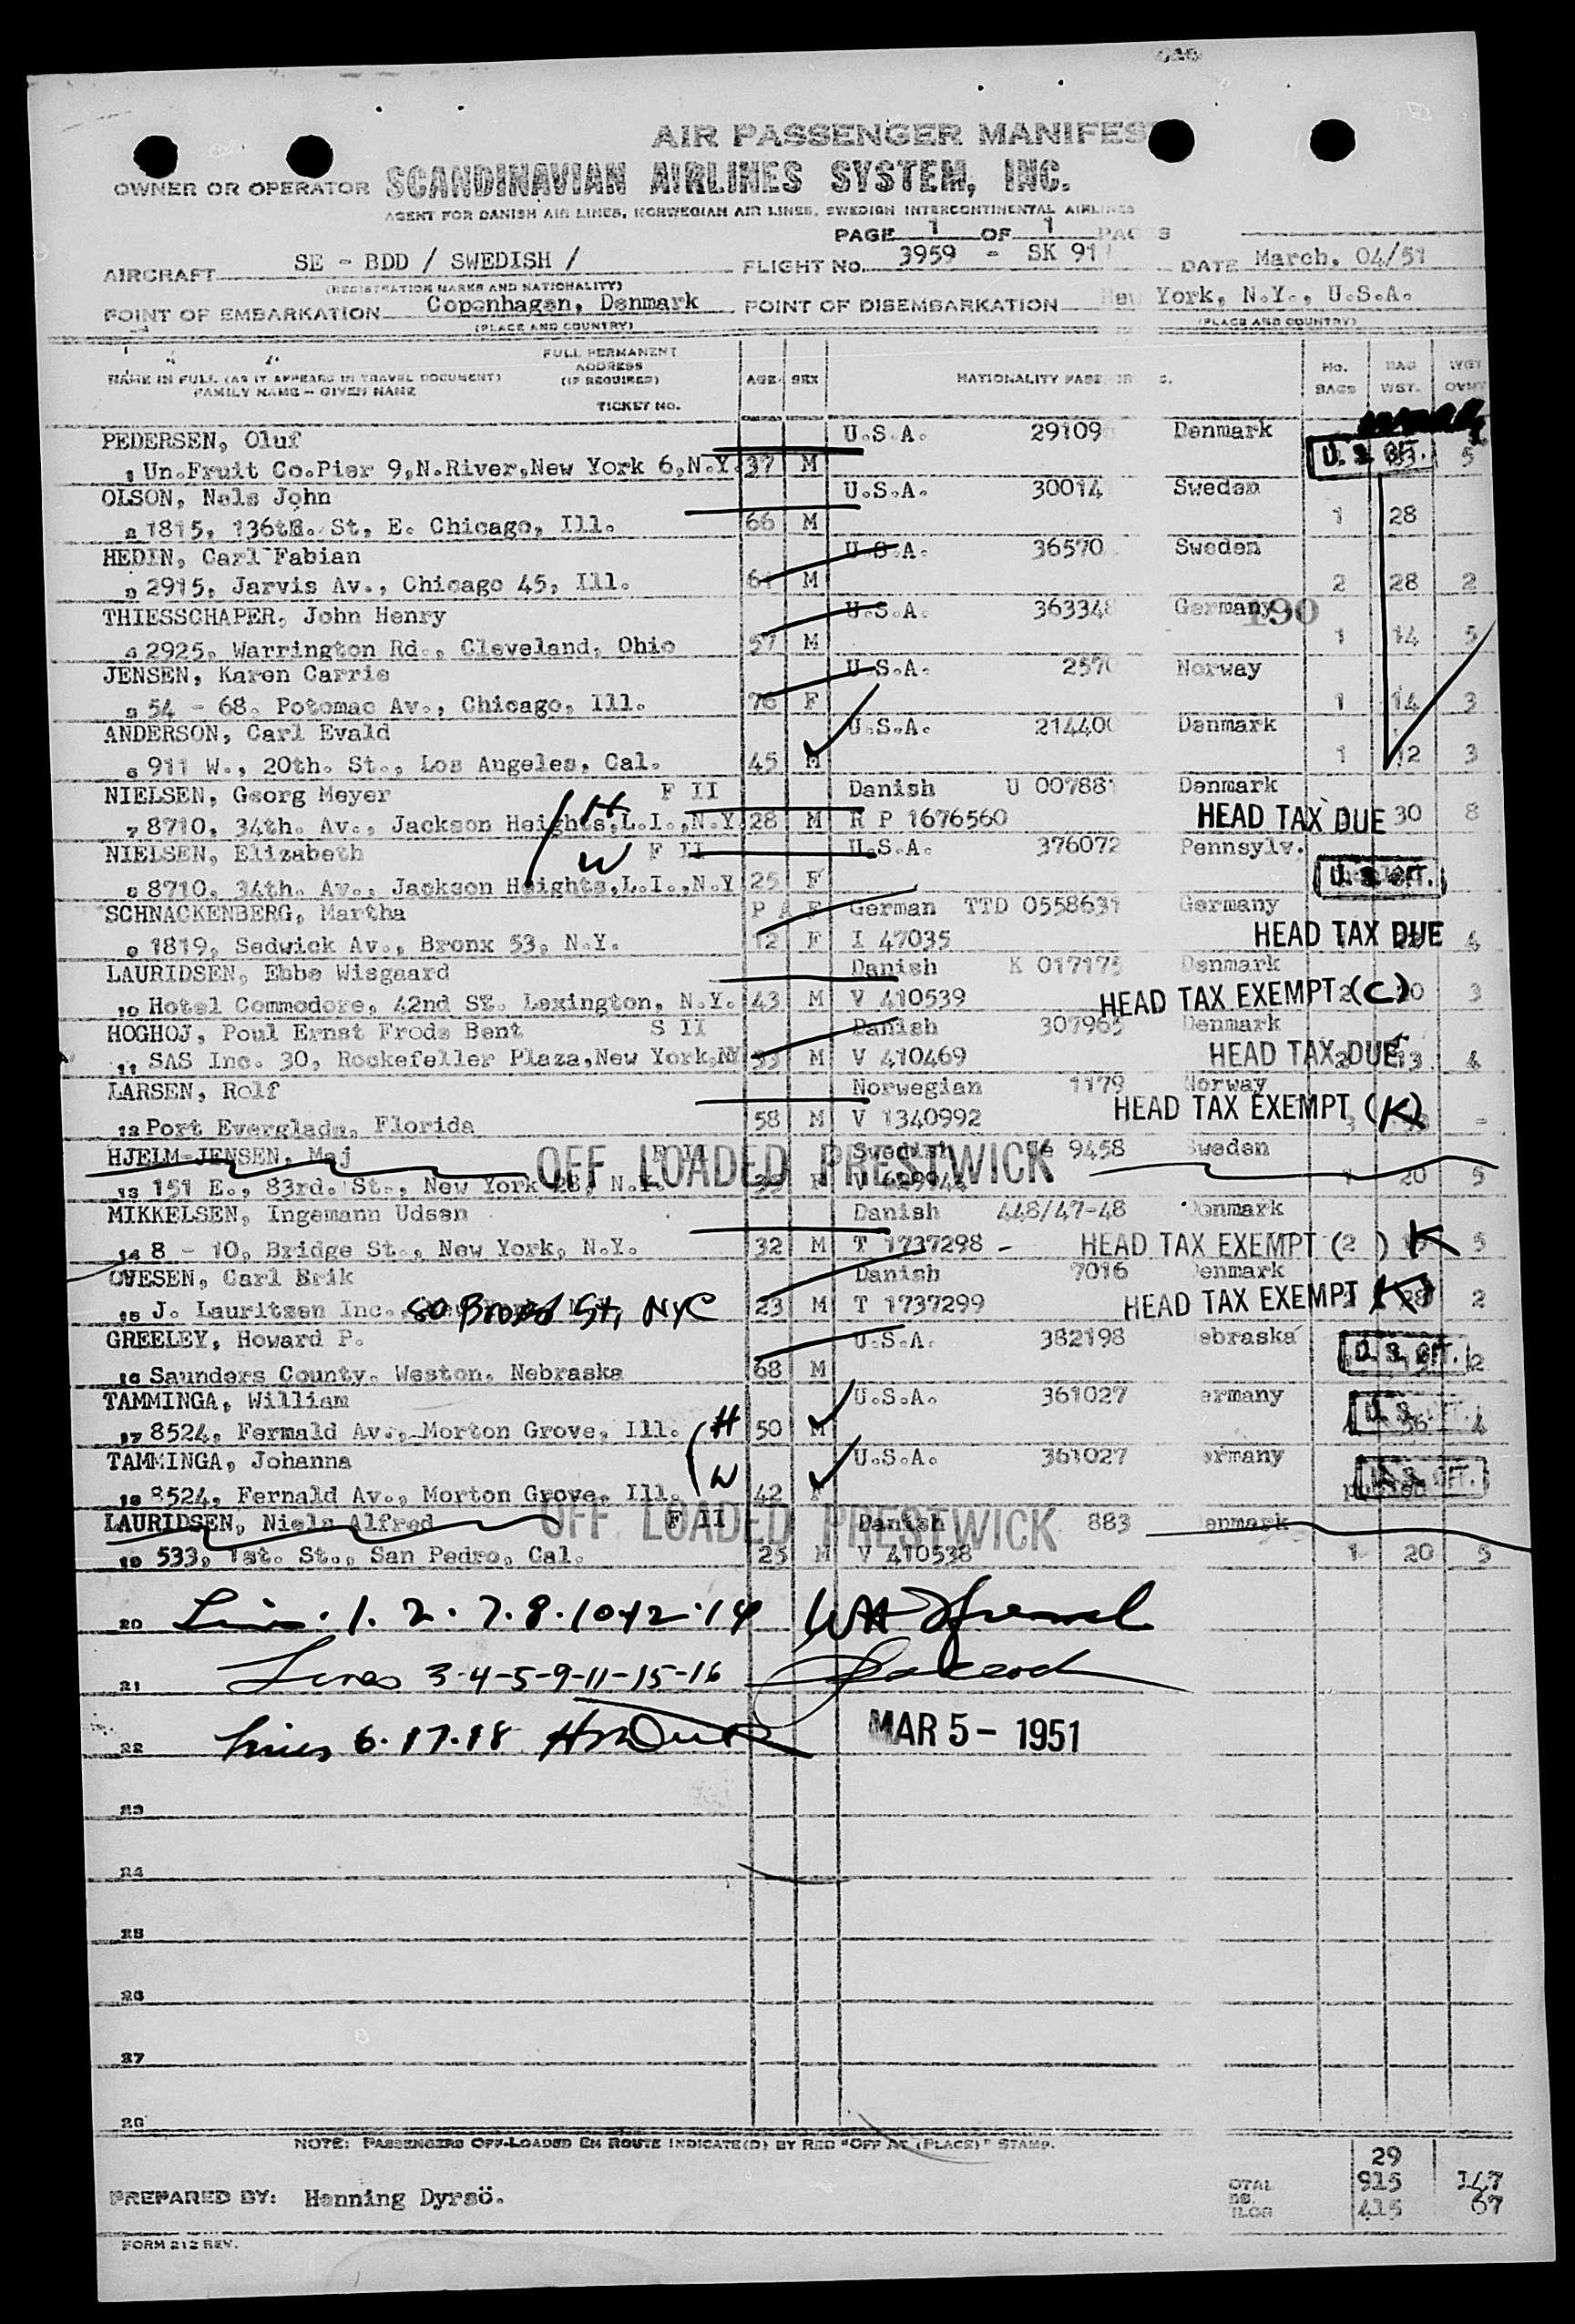 AIR PASSENGER MANIFES
OWNER OR OPERATOR SCANDINAVIAN AIRLINES SYSTEM, INC.
AGENT FOR DANISH AIR LINES, NORWEGIAN AIR LINES, SWEDISH INTERCONTINENTAL AIRLINES
PAGE 1 OF 1 PAGES
AIRCRAFT SE - BDD / SWEDISH / FLIGHT NO. 3959 - SK 91 DATE March, 04/51
(REGISTRATION MARKS AND NATIONALITY)
POINT OF EMBARKATION Copenhagen, Denmark POINT OF DISEMBARKATION New York, N.Y., U.S.A.
(PLACE AND COUNTRY) (PLACE AND COUNTRY)
NAME IN FULL (AS IT APPEARS IN TRAVEL DOCUMENT)
FAMILY NAME - GIVEN NAME
FULL PERMANENT
ADDRESS
(IF REQUIRED)
TICKET NO.
AGE SEX NATIONALITY No. BAGS BAG WGT. WGT
PEDERSEN, Oluf U.S.A. 29109 Denmark
1 Un.Fruit Co.Pier 9,N.River,New York 6,N.Y. 37 M 5
OLSON, Nels John U.S.A. 30014 Sweden
2 1815, 136th. St, E. Chicago, Ill. 66 M 1 28
HEDIN, Carl Fabian U.S.A. 36570 Sweden
3 2915, Jarvis Av., Chicago 45, Ill. 61 M 2 28 2
THIESSCHAPER, John Henry U.S.A. 363348 Germany 190
4 2925, Warrington Rd., Cleveland, Ohio 57 M 1 14 5
JENSEN, Karen Carrie U.S.A. 2570 Norway
5 54 - 68. Potomac Av., Chicago, Ill. 76 F 1 14 3
ANDERSON, Carl Evald U.S.A. 214400 Denmark
6 911 W., 20th. St., Los Angeles, Cal. 45 M 1 12 3
NIELSEN, Georg Meyer F II Danish U 007881 Denmark
7 8710, 34th. Av., Jackson Heights,L.I.,N.Y. 28 M R P 1676560 HEAD TAX DUE 30 8
H
NIELSEN, Elizabeth F II U.S.A. 376072 Pennsylv.
W
8 8710, 34th. Av., Jackson Heights,L.I.,N.Y 25 F
SCHNACKENBERG, Martha German TTD 0558631 Germany
9 1819, Sedwick Av., Bronx 53, N.Y. 12 F I 47035 HEAD TAX DUE 4
LAURIDSEN, Ebbe Wisgaard Danish K 017175 Denmark
10 Hotel Commodore, 42nd St. Lexington, N.Y. 43 M V 410539 HEAD TAX EXEMPT (C) 3
HOGHOJ, Poul Ernst Frode Bent S II Danish 307965 Denmark
11 SAS Inc. 30, Rockefeller Plaza,New York,NY 33 M V 410469 HEAD TAX DUE 13 4
LARSEN, Rolf Norwegian 1179 Norway
12 Port Everglade, Florida 58 M V 1340992 HEAD TAX EXEMPT (K) -
HJELM-JENSEN, Maj Swedish 9458 Sweden
OFF LOADED PRESTWICK
13 151 E., 83rd. St., New York 28, N.Y. 1 20 5
MIKKELSEN, Ingemann Udsen Danish 448/47-48 Denmark
14 8 - 10, Bridge St., New York, N.Y. 32 M T 1737298 HEAD TAX EXEMPT (2 ) K 5
OVESEN, Carl Erik Danish 7016 Denmark
15 J. Lauritzen Inc., 80 Broad St, NYC 23 M T 1737299 HEAD TAX EXEMPT K 2
GREELEY, Howard P. U.S.A. 382198 ebraska
16 Saunders County, Weston, Nebraska 68 M 2
TAMMINGA, William U.S.A. 361027 ermany
17 8524, Fermald Av., Morton Grove, Ill. H 50 M 4
TAMMINGA, Johanna U.S.A. 361027 ermany
18 8524, Fernald Av., Morton Grove, Ill. W 42 F
LAURIDSEN, Niels Alfred F II Danish 883 enmark
OFF LOADED PRESTWICK
19 533, 1st. St., San Pedro, Cal. 25 M V 410538 1 20 5
20 Lines 1. 2. 7. 8. 10. 12. 14
21 Lines 3-4-5-9-11-15-16
22 Lines 6. 17. 18 MAR 5 - 1951
23
24
25
26
27
28
NOTE: PASSENGERS OFF-LOADED EN ROUTE INDICATE(D) BY RED "OFF AT (PLACE)" STAMP.
29
PREPARED BY: Henning Dyrsö. OTAL 915 147
415 67
FORM 212 REV.